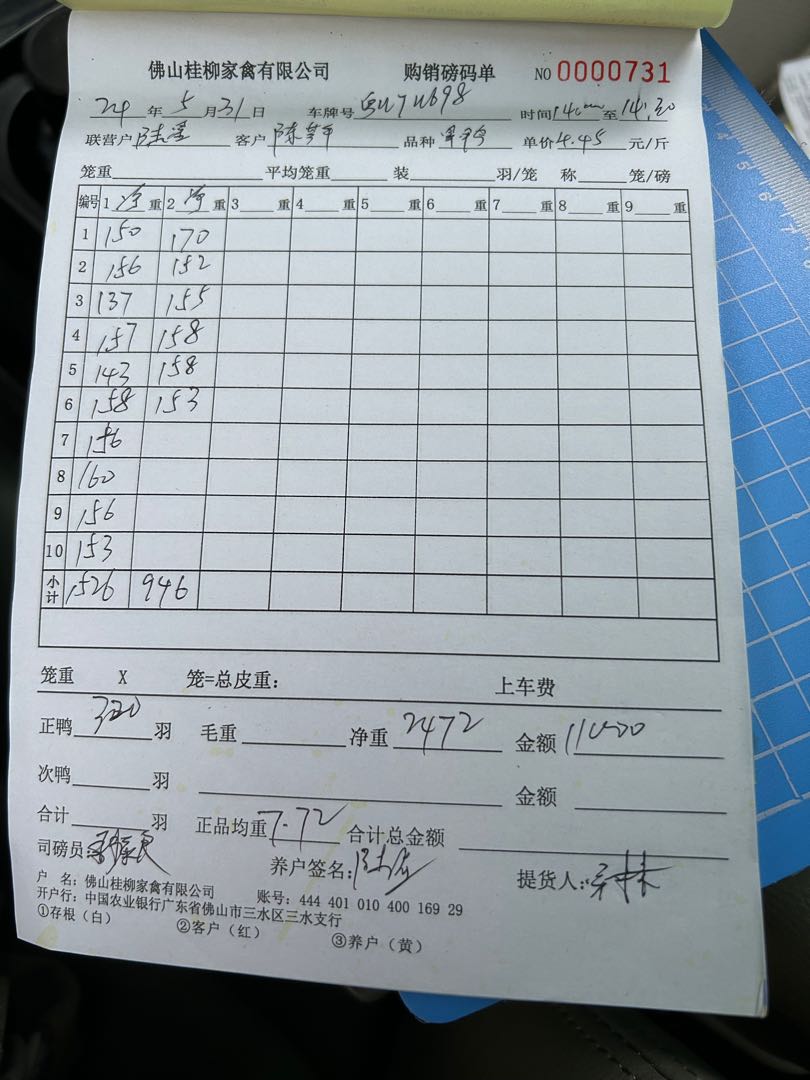 佛山桂柳家禽有限公司 购销磅码单 NO 0000731
24 年 5 月 31 日 车牌号 时间 14:00 至 14:30
联营户 客户 陈 品种 单价 4.45 元/斤
笼重 平均笼重 装 羽/笼 称 笼/磅
编号 1 净 重 2 净 重 3 重 4 重 5 重 6 重 7 重 8 重 9 重
1 150 170
2 156 152
3 137 155
4 157 158
5 143 158
6 158 153
7 156
8 160
9 156
10 153
小计 1526 946
笼重 X 笼=总皮重： 上车费
正鸭 320 羽 毛重 净重 2472 金额 11000
次鸭 羽 金额
合计 羽 正品均重 7.72 合计总金额
司磅员: 养户签名: 提货人:
户 名: 佛山桂柳家禽有限公司 账号: 444 401 010 400 169 29
开户行: 中国农业银行广东省佛山市三水区三水支行
①存根（白） ②客户（红） ③养户（黄）